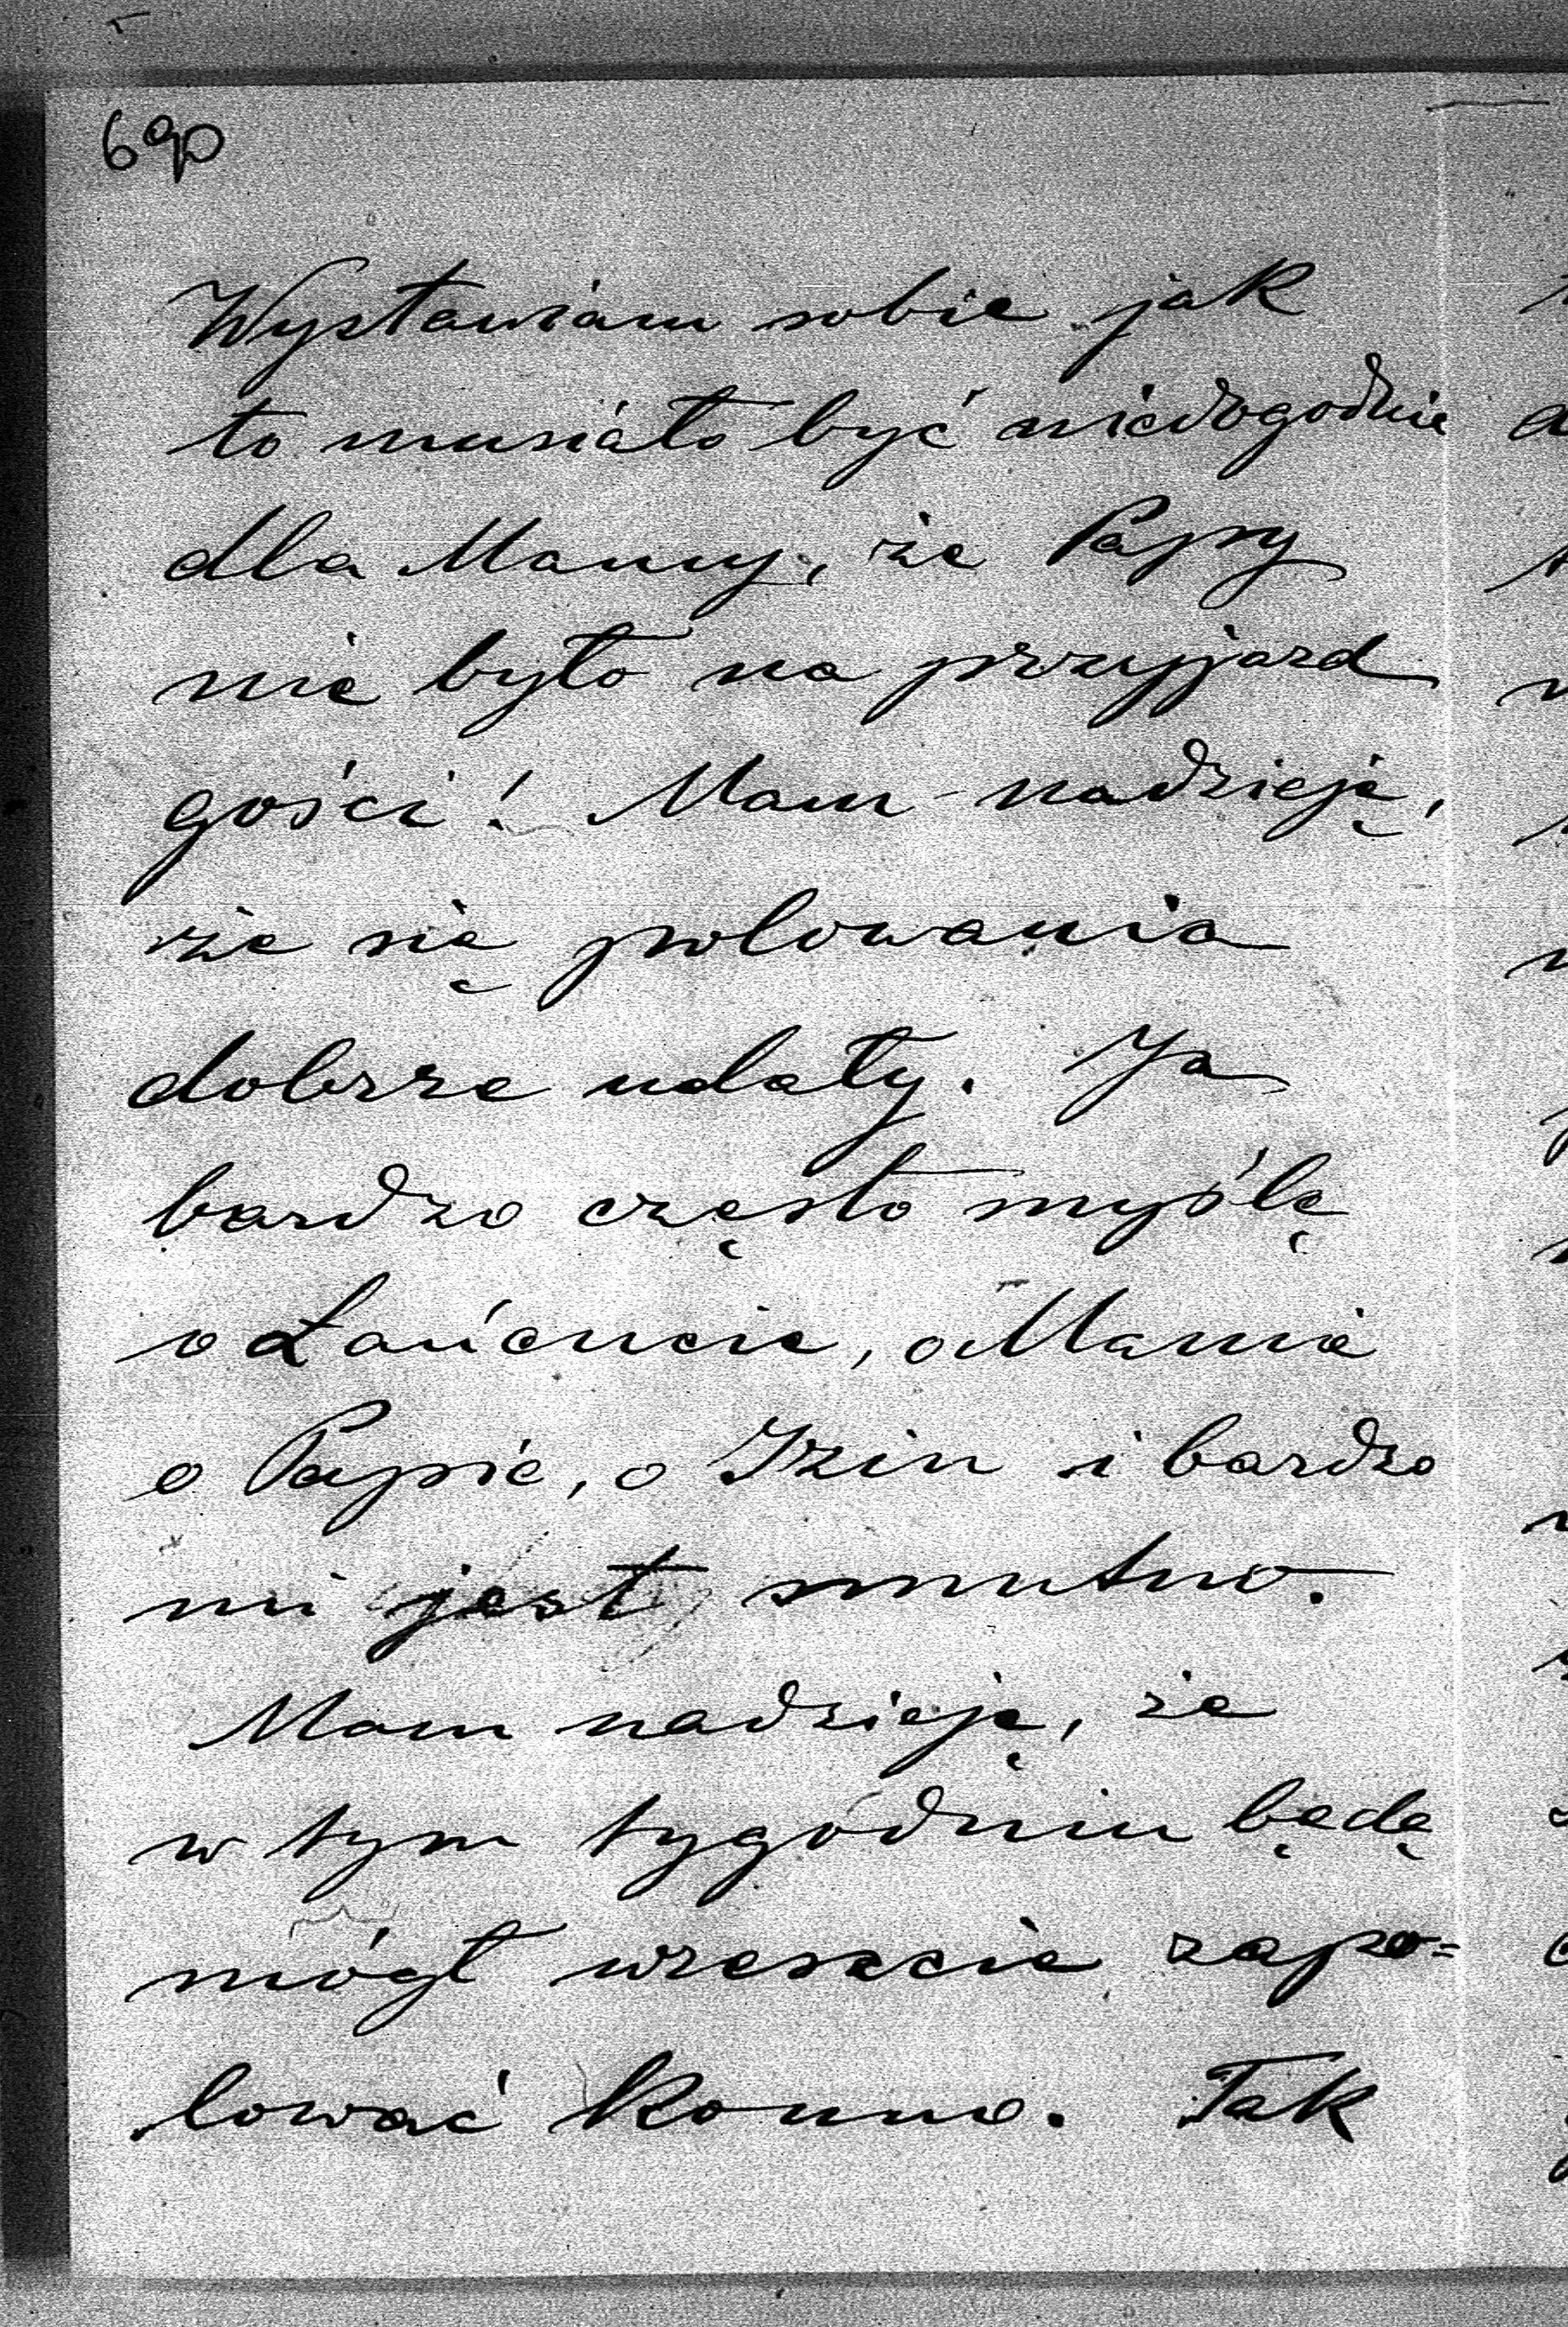 690
Wystawiam sobie jak
to musiało być niedogodnie
dla Mamy, że Papy
nie było na przyjazd
gości! Mam nadzieję,
że się polowania
dobrze udały. Ja
bardzo często myślę
o Łańcucie, o Mamie
o Papie, o Izin i bardzo
mi jest smutno.
Mam nadzieję, że
w tym tygodniu będę
mógł wreszcie zapo=
lować konno. Tak